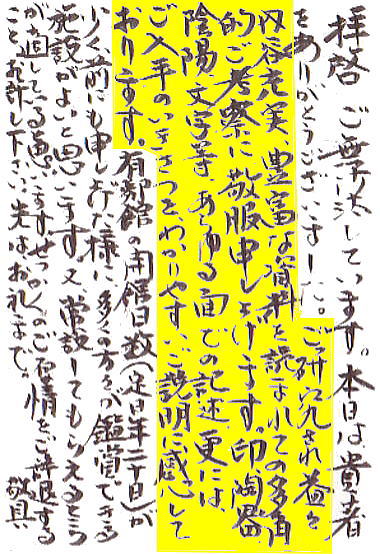 拝啓 ご無沙汰しています。本日は貴著
をありがとうございました。ご研究され益々
内容充実、豊富な資料を読まれての多角
的ご考察に敬服申し上げます。印、陶器、
陰陽、文字等、あらゆる面での記述、更には、
ご入手のいきさつをわかりやすいご説明に感心して
おります。有鄰館の開館日数(定日年二十日)が
少く、前にも申し上げた様に、多くの方々が鑑賞できる
施設がよいと思います。又、常設してもらえるところ
が適している ます。せっかくのご厚情をご辞退する
ことお許し下さい。先はお礼まで。 敬具